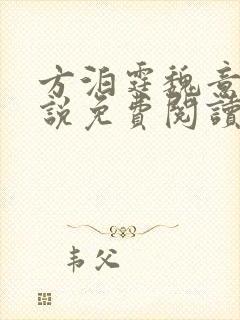 方泊霆魏意
說免費閱讀
韦父